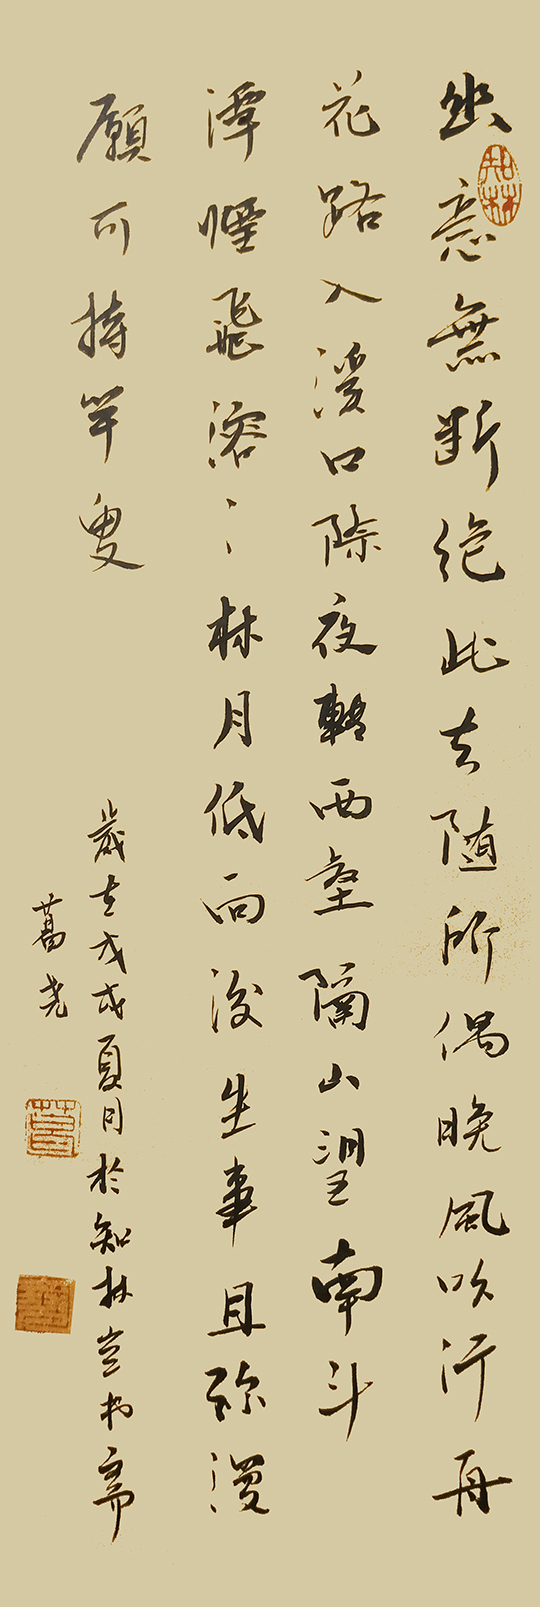 知林
幽意無斷絕此去随所偶晚風吹行舟
花路入溪口際夜轉西壑隔山望南斗
潭煙飛溶〻林月低向後生事且弥漫
願為持竿叟
歲在戊戌夏月於知林堂书斋
葛尧